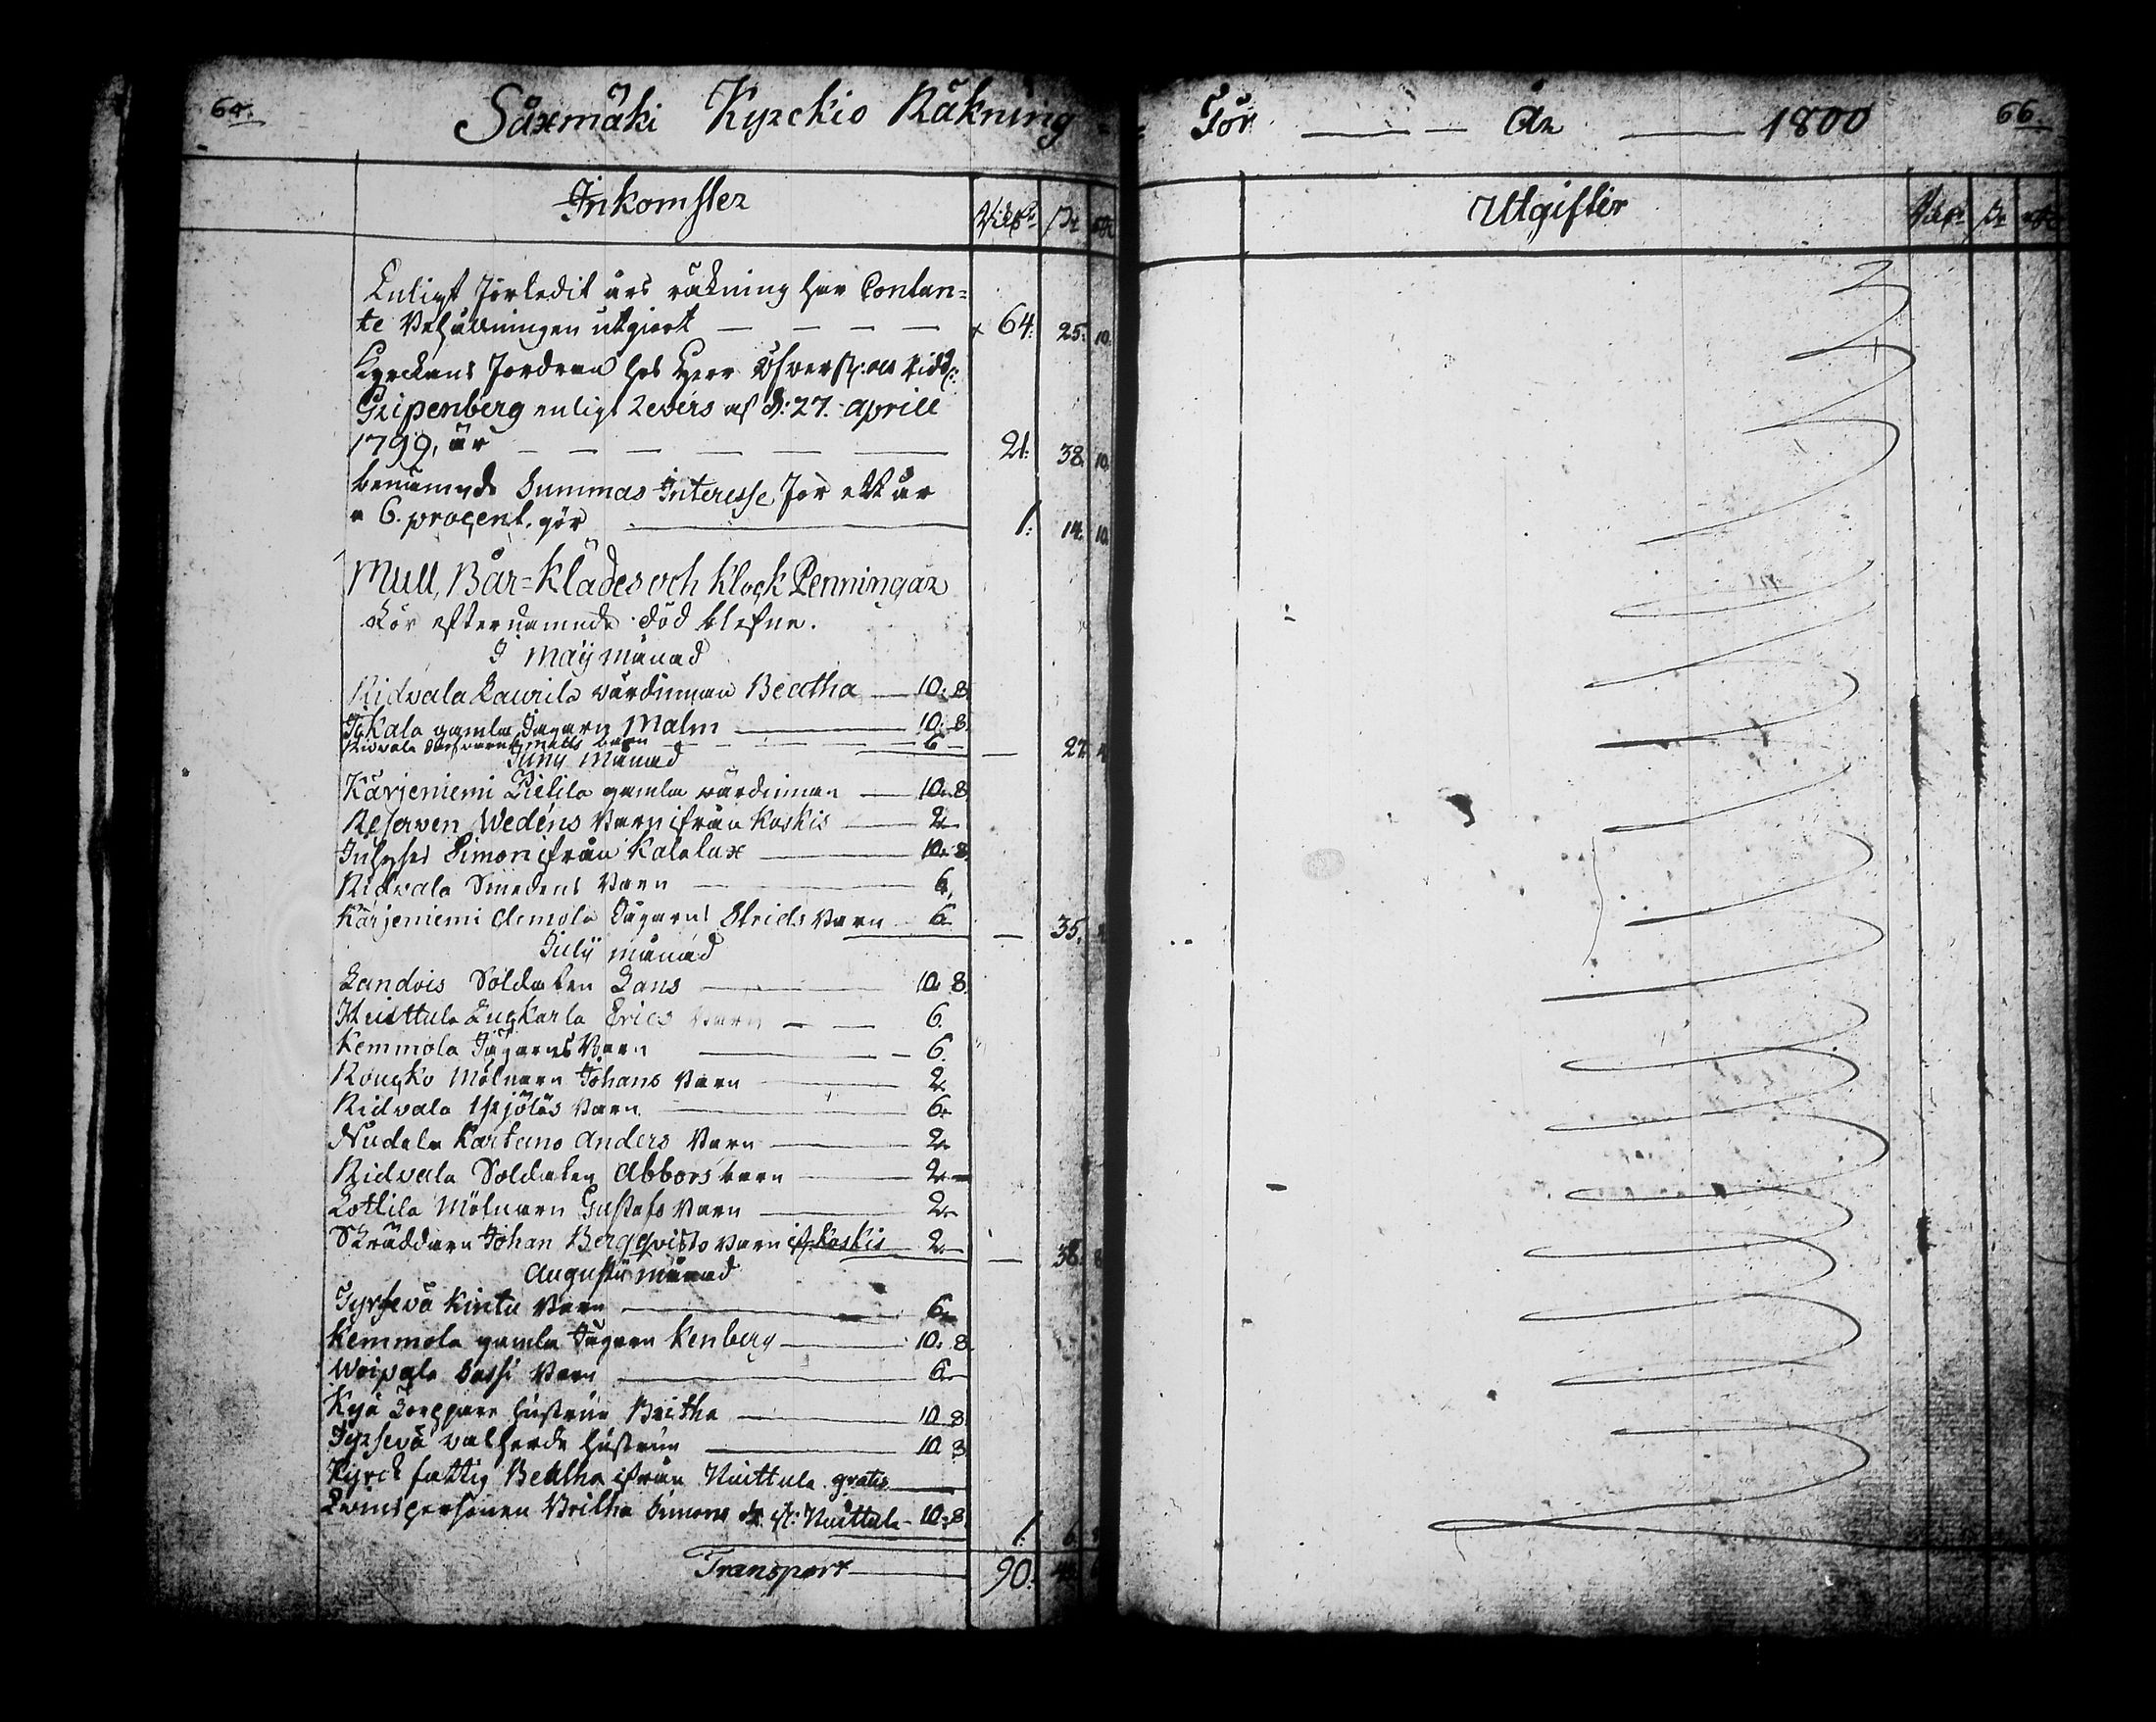 64.
Såxmäki Kyrckio Räkning
Inkomster
Riksd. sk. rst.
Enligt förledit års räkning har Contan=
te Behållningen utgiort — — — — 64. 25. 10.
Kyrckans fordran hos Herr Öfverst: och Ridd:
Gripenberg enligt Revers af d: 27. aprill
1799, är — — — — — — 21. 38. 10.
benämnde Summas Interesse för ett år
a 6. procent. gör — 1. 14. 10.
Mull, Bår=Klädes och Klock Penningar
för efternamnde död blefne.
I Maÿ månad
Ridvala Laurila värdinnan Beatha — 10. 8.
Jokala gamla Jägarn Malm — 10. 8.
Ridvala Matts barn — 6 — 27.
Juny Månad
Kärjeniemi Pietila gamla värdinnan — 10. 8.
Reserven Wedéns Barn ifrån Koskis — 2
Inhyses Simon ifrån Kalalax — 10. 8.
Ridvala Smedens Barn — 6.
Kärjeniemi Clemola Jägarns Strids Barn — 6 — 35.
Julÿ månad
Landvis Soldaten Lans — 10. 8.
Huittula Lugkarla Erics Barn — 6.
Kemmola Jägarns Barn — 6.
Rougko Mölnarn Johans Barn — 2.
Ridvala Barn — 6.
Nudala Kartano Anders Barn — 2.
Ridvala Soldaten Abbors barn — 2
Lottila Mölnarn Gustafs Barn — 2.
Skräddarn Johan Bergqvists Barn if. Koskis — 2 — 38. 8
Augusti månad
Tyrfevä Kintu Barn — 6
Kemmola gamla Jägarn Kenberg — 10. 8.
Woipala Sassi Barn — 6
Kyä hustru Britha — 10. 8.
Tyrfevä hustru — 10. 8
Kyrck fattig Beatha ifrån Huittula gratis
Qvinspersonen Britha Simons dr. if: Huittula — 10. 8. 1. 6.
Transport — 90.
För — — År — 1800
66
Utgifter
Riksd. sk. rst.